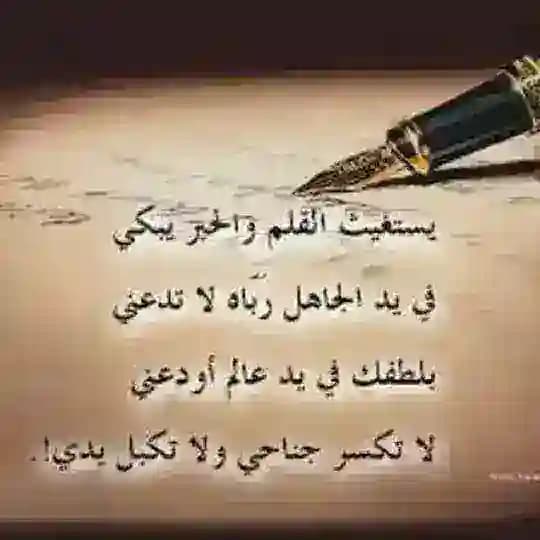 يستغيث القلم والحبر يبكي
في يد الجاهل ربّاه لا تدعني
بلطفك في يد عالم أودعني
لا تكسر جناحي ولا تكبل يدي!.